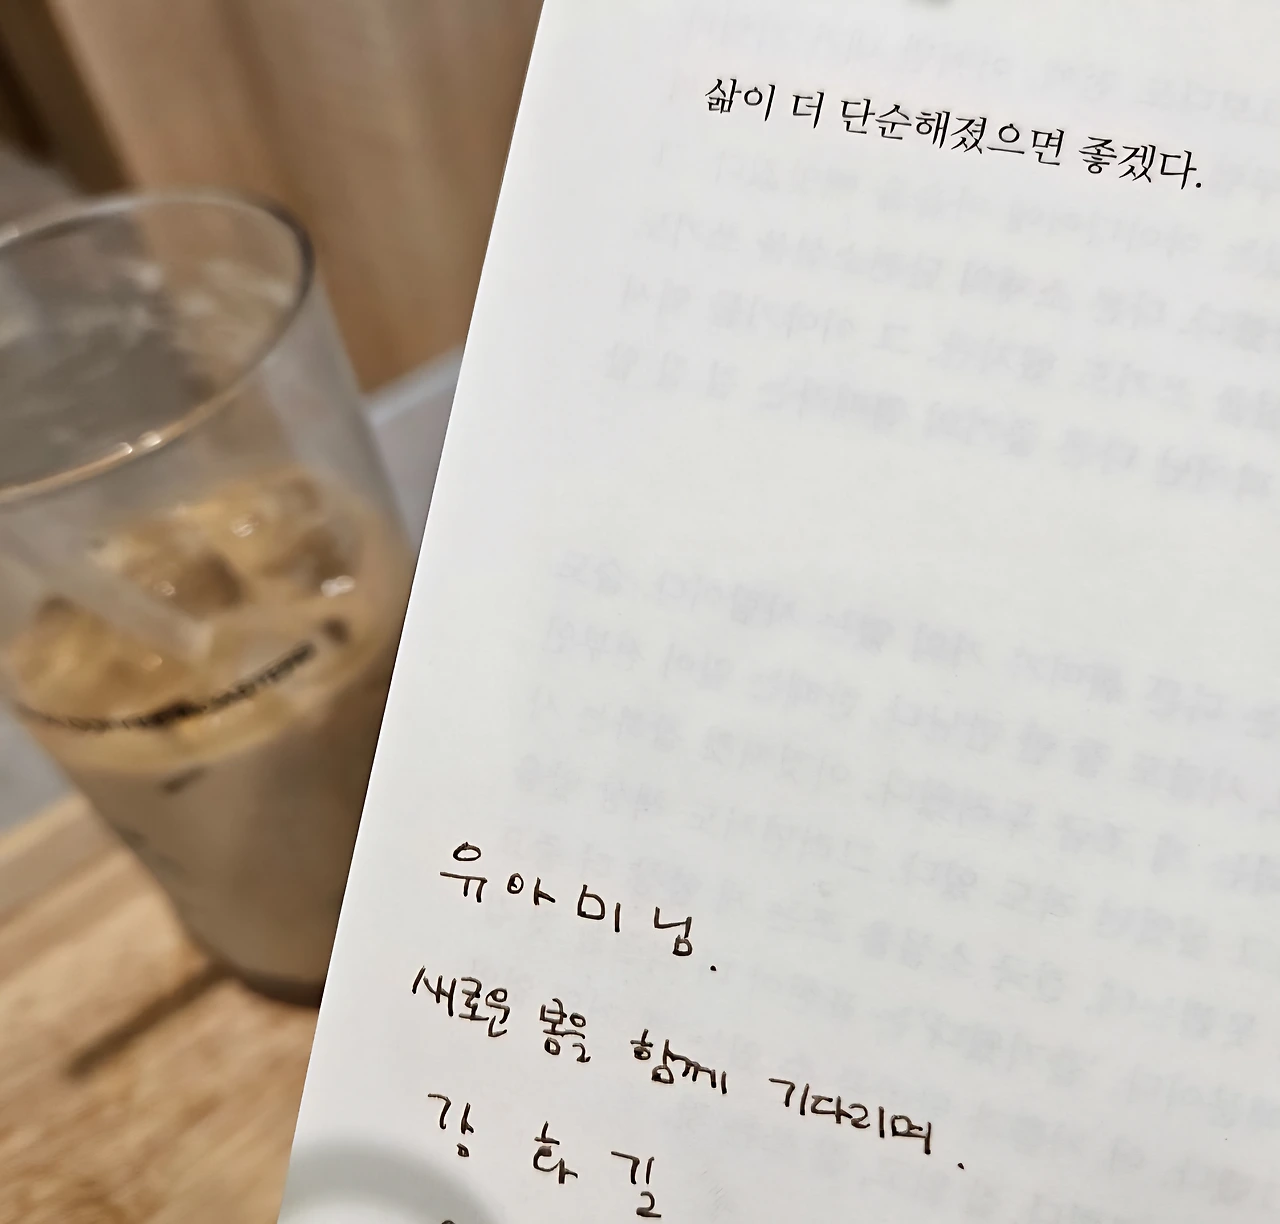 삶이 더 단순해졌으면 좋겠다.
유아미님.
새로운 봄을 함께 기다리며.
강화길